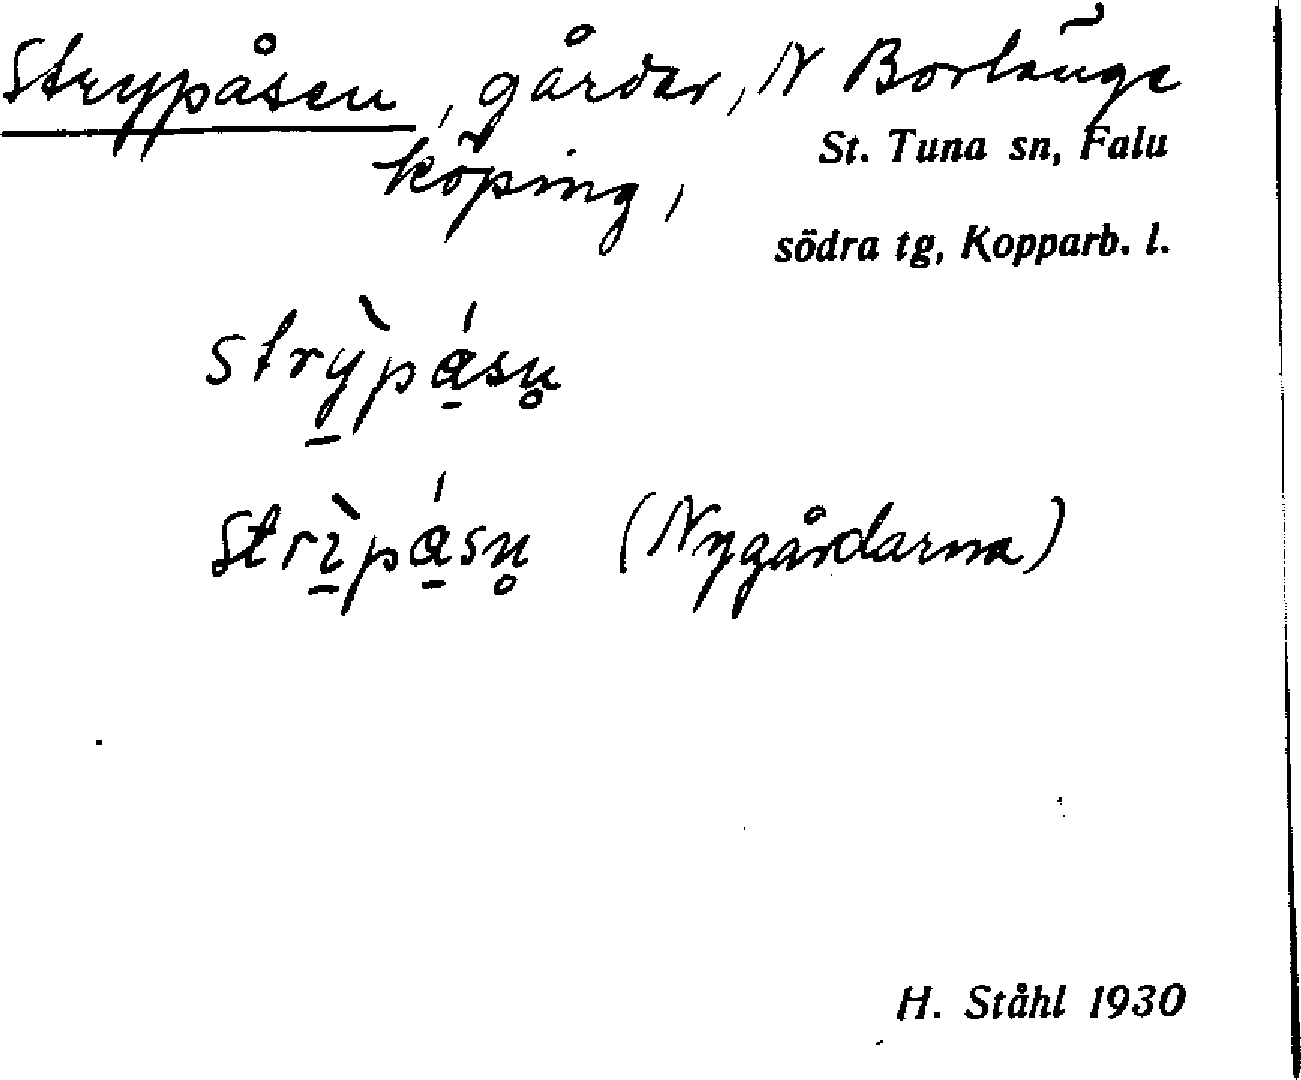 Strypåsen, gårdar, N Borlänge
köping,
St. Tuna sn, Falu
södra tg, Kopparb. l.
strỳ̱pá̱sn̥
strì̱pá̱sn̥ (Nygårdarna)
H. Ståhl 1930